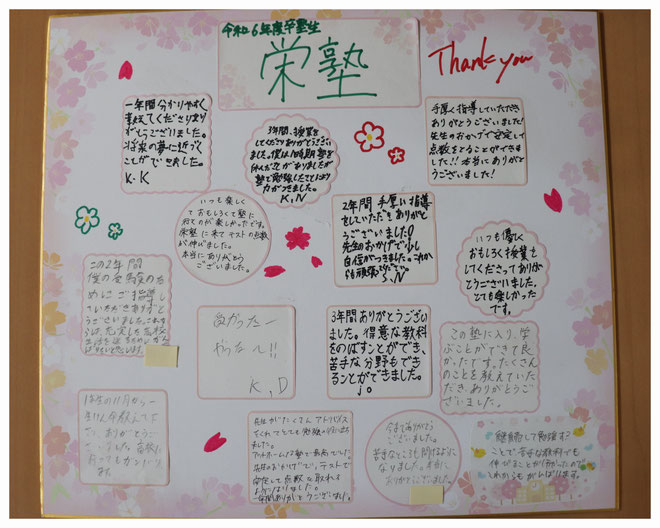 令和6年度卒塾生
栄塾
Thank you
一年間分かりやすく
教えてくださりあり
がとうございました。
将来の夢に近づく
ことができました。
K.K
3年間、授業を
してくださりありがとうござい
ました。僕は一時期塾を
休んだことがありましたが
塾で勉強したことにより
力がつきました。
K,N
手厚く指導していただき
ありがとうございました!
先生のおかげで安定して
点数をとることができま
した!!本当にありがと
うございました!
いつも楽しく
ておもしろくて塾に
行くのが楽しかったです。
栄塾に来てテストの点数
が伸びました。
本当にありがとう
ございました。
2年間手厚い指導
をしていただきありがと
うございました!
先生のおかげで少し
自信がつきました。これか
らも頑張ります。
S,N
いつも優しく
おもしろく授業を
してくださってありが
とうございました。
とても楽しかった
です。
この2年間
僕の受験のた
めにご指導し
ていただきありがと
うございました。これか
らは、充実した高校
生活を送るため
がんばりたいと思います。
良かったー
やったー!!
K,D
3年間ありがとうござい
ました。得意な教科
をのばすことができ、
苦手な分野もでき
ることができました。
j.o
この塾に入り、学
ぶことができて良
かったです。たくさん
のことを教えていた
だきありがとうござい
ました。
1年生の11月から
教えて下さ
い、ありがとうご
ざいました。高校に
行ってもガンバ
ります
先生がたくさんアドバイス
をくれてとても勉強の役に立ち
ました。
アットホームな塾で最高でした!
先生のおかげで、テストで
安定して点数を取れる
ようになりました。
一年間ありがとうございました。
今までありがとう
ございました。
苦手なところも聞けるように
なりました。本当に
ありがとうございました。
継続して勉強する
ことで苦手な教科でも
伸びることが
これからもがんばります。